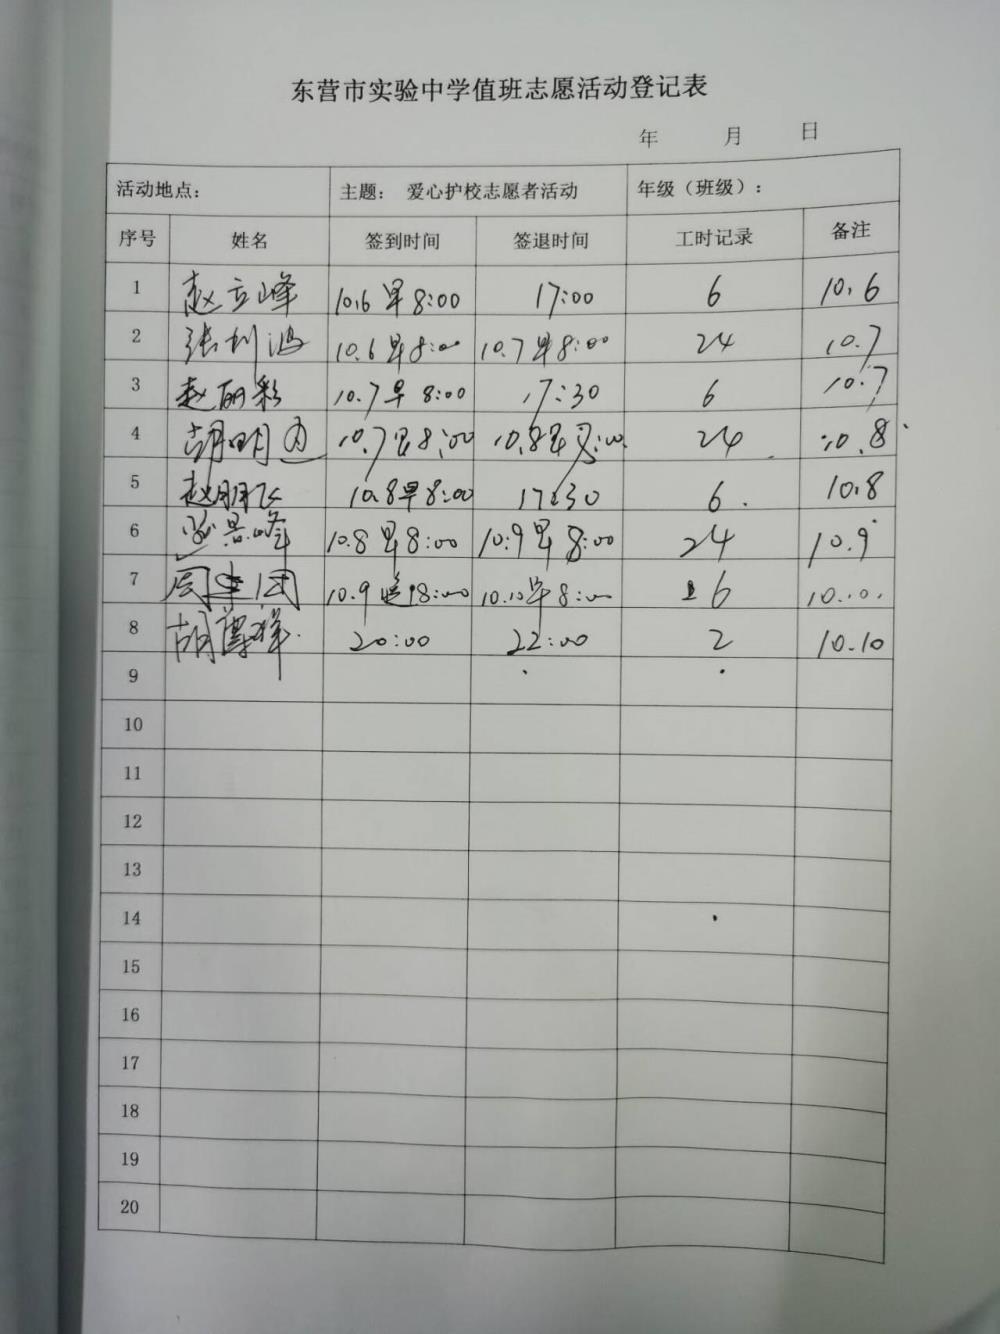 东营市实验中学值班志愿活动登记表
年 月 日
活动地点： 主题： 爱心护校志愿者活动 年级（班级）：
序号 姓名 签到时间 签退时间 工时记录 备注
1 赵立峰 10.6早8:00 17:00 6 10.6
2 张利波 10.6早8:00 10.7早8:00 24 10.7
3 赵丽彩 10.7早8:00 17:30 6 10.7
4 胡明 10.7早8:00 10.8早8:00 24 10.8
5 赵朋飞 10.8早8:00 17:30 6 10.8
6 景峰 10.8早8:00 10.9早8:00 24 10.9
7 周建团 10.9晚18:00 10.10早8:00 6 10.10.
8 胡 祥 20:00 22:00 2 10.10
9
10
11
12
13
14
15
16
17
18
19
20